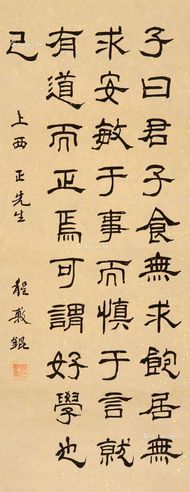 子曰君子食無求飽居無
求安敏于事而慎于言就
有道而正焉可謂好學也
已
上西正先生
程義錕